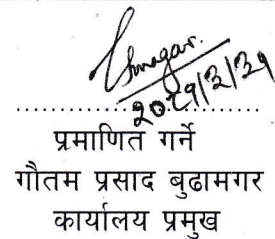 २०८१/३/३१
....................................
प्रमाणित गर्ने
गौतम प्रसाद बुढामगर
कार्यालय प्रमुख